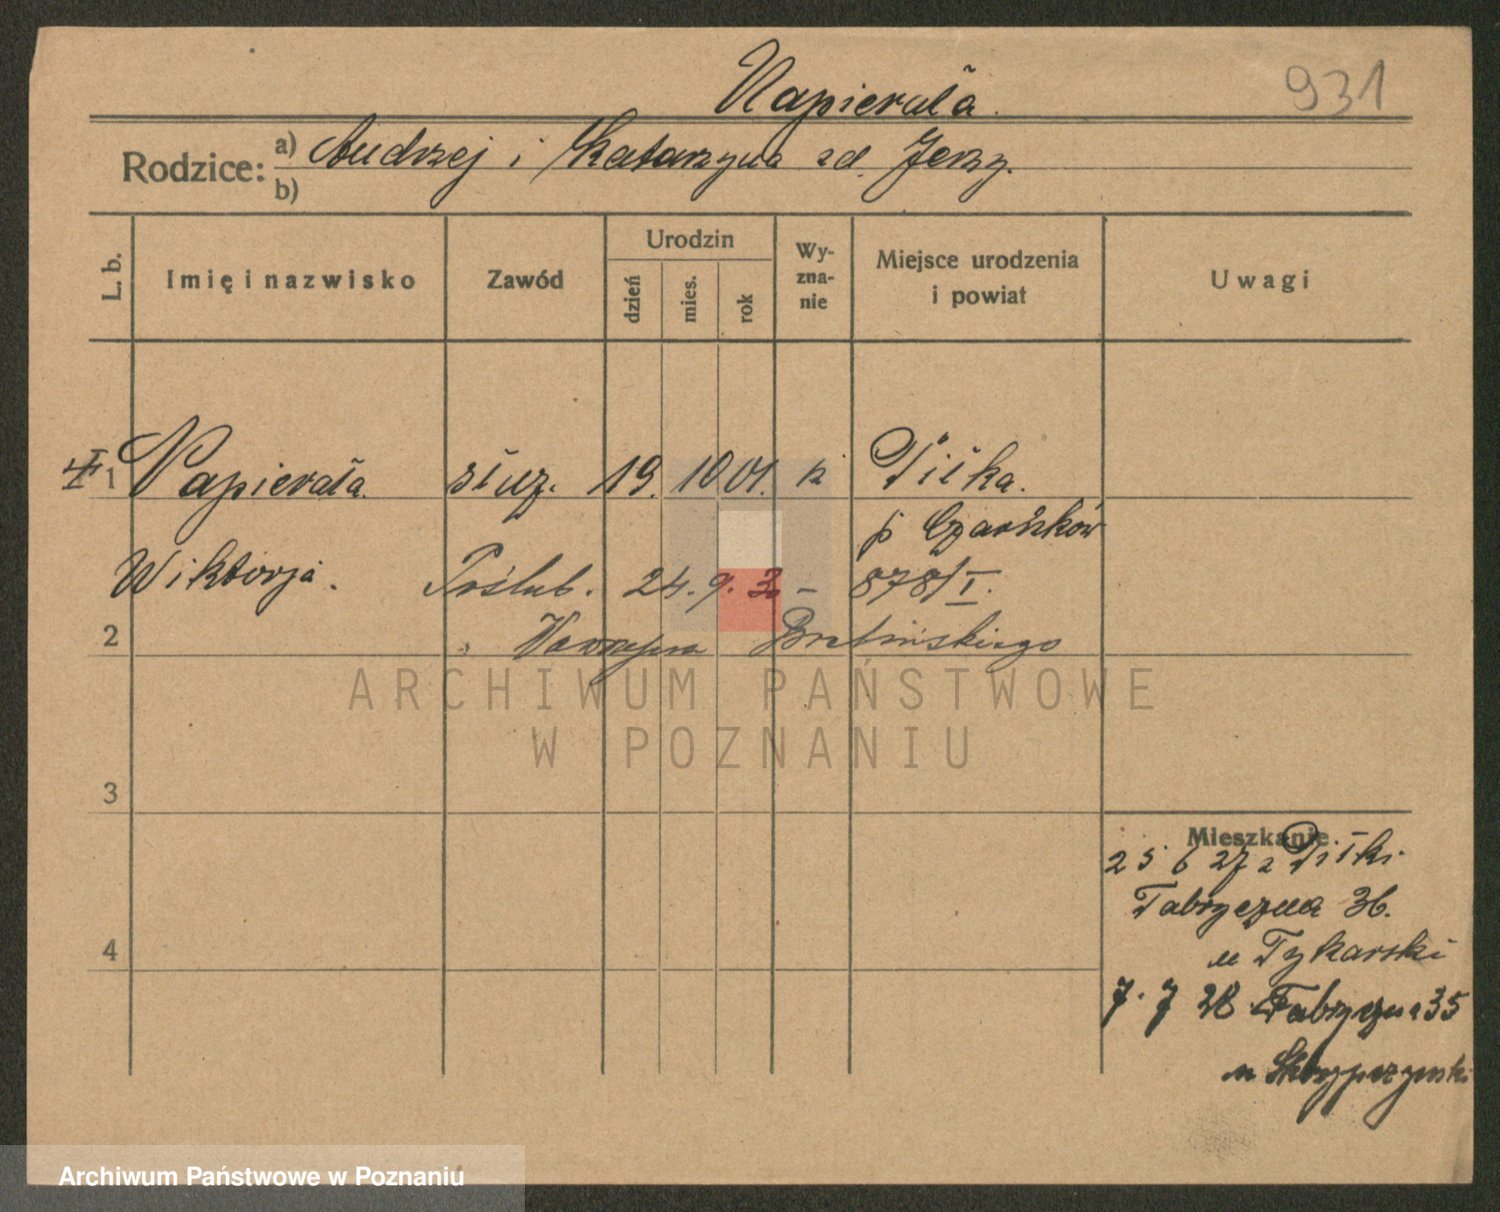 Napierała.
931
Rodzice: a) Andrzej i Katarzyna zd. Jerzy.
b)
L. b.
Imię i nazwisko
Zawód
Urodzin
dzień
mies.
rok
Wy-
zna-
nie
Miejsce urodzenia
i powiat
Uwagi
1 Napierała służ. 19. 10 01. k Piłka.
p Czarnków
Wiktorja. Poślub. 24. 9. 30 – 878/I.
2 Wawrzyna
3
4
ARCHIWUM PAŃSTWOWE
W POZNANIU
Mieszkanie
25 6 27 z Piłki
Fabryczna 36.
u Tykarski
7. 7 28 Fabryczna 35
u Skrzypczyński
Archiwum Państwowe w Poznaniu